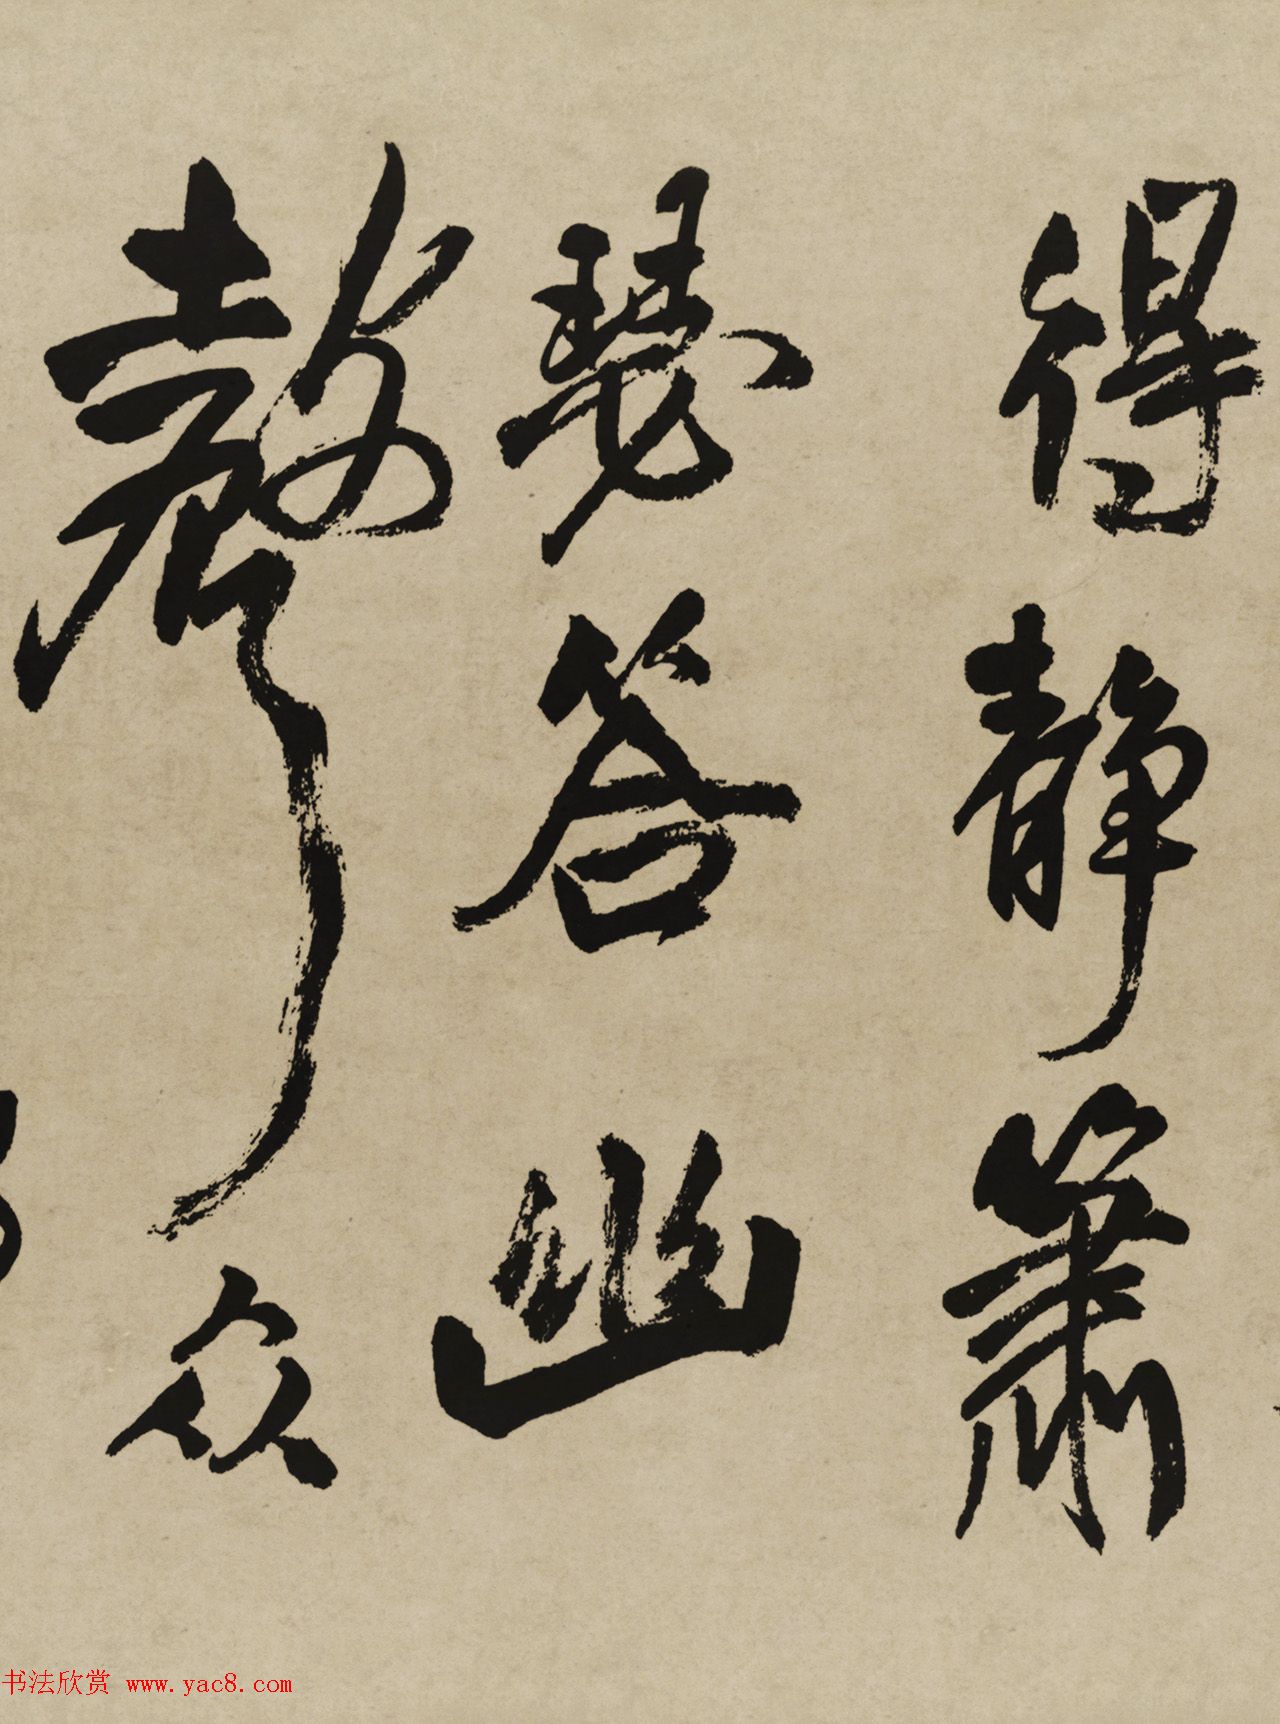 得静箫
瑟答幽
声众
书法欣赏 www.yac8.com